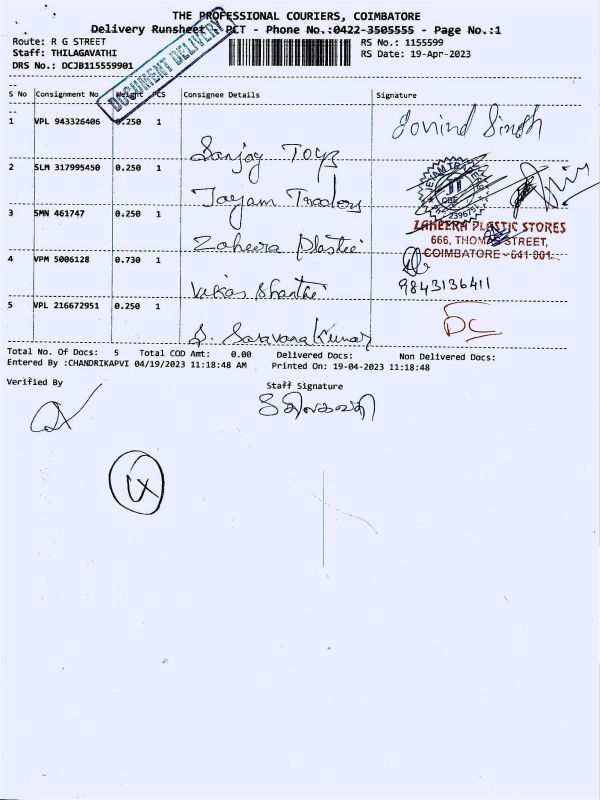 THE PROFESSIONAL COURIERS, COIMBATORE
Delivery Runsheet - PCT - Phone No.:0422-3505555 - Page No.:1
Route: R G STREET
RS No.: 1155599
Staff: THILAGAVATHI
RS Date: 19-Apr-2023
DRS No.: DCJB115559901
DOCUMENT DELIVERY
S No Consignment No Weight PCS Consignee Details Signature
1 VPL 943326406 0.250 1 Sanjay Toys Govind Singh
2 SLM 317995450 0.250 1 Jayam Traders
3 SMN 461747 0.250 1 Zaheera Plastic
ZAHEERA PLASTIC STORES
666, THOMAS STREET,
COIMBATORE - 641 001.
4 VPM 5006128 0.730 1 Vikas Shanthi 9843136411
5 VPL 216672951 0.250 1 S. Saravana Kumar DC
Total No. Of Docs: 5 Total COD Amt: 0.00 Delivered Docs: Non Delivered Docs:
Entered By :CHANDRIKAPVI 04/19/2023 11:18:48 AM Printed On: 19-04-2023 11:18:48
Verified By
Staff Signature